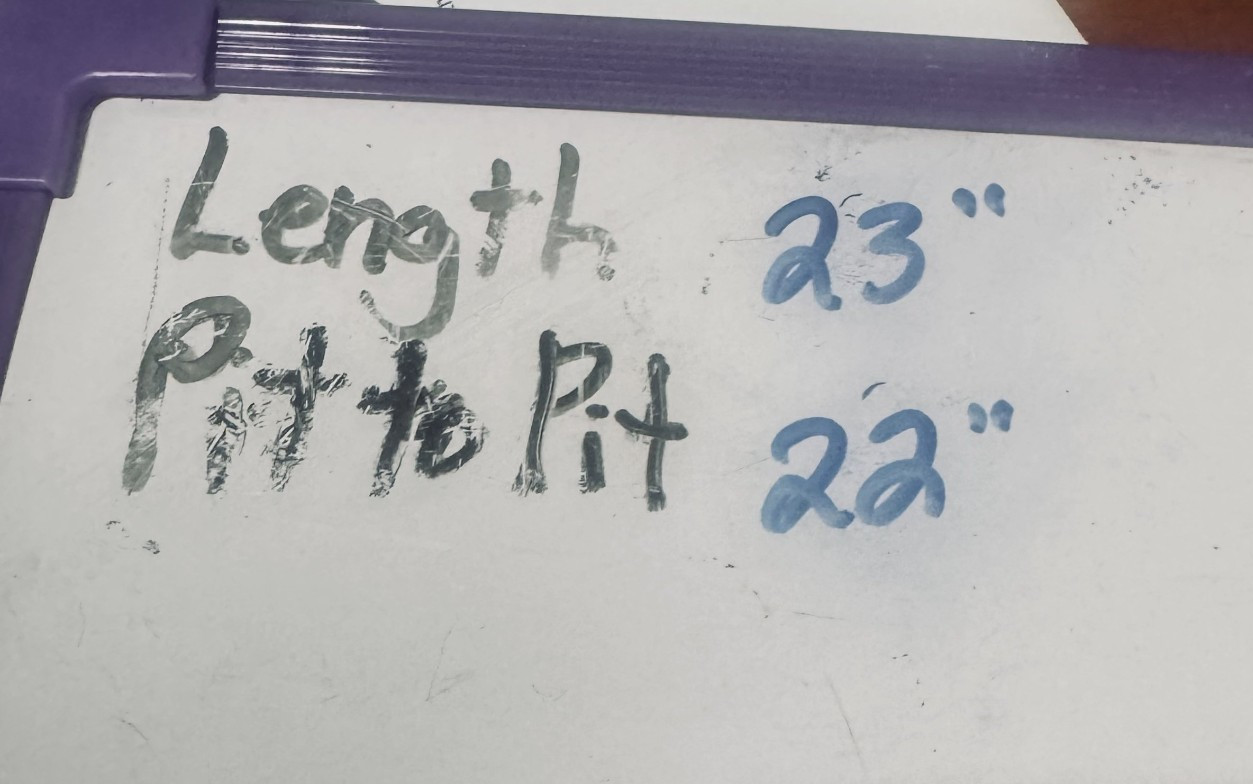 Length 23"
Pit to Pit 22"